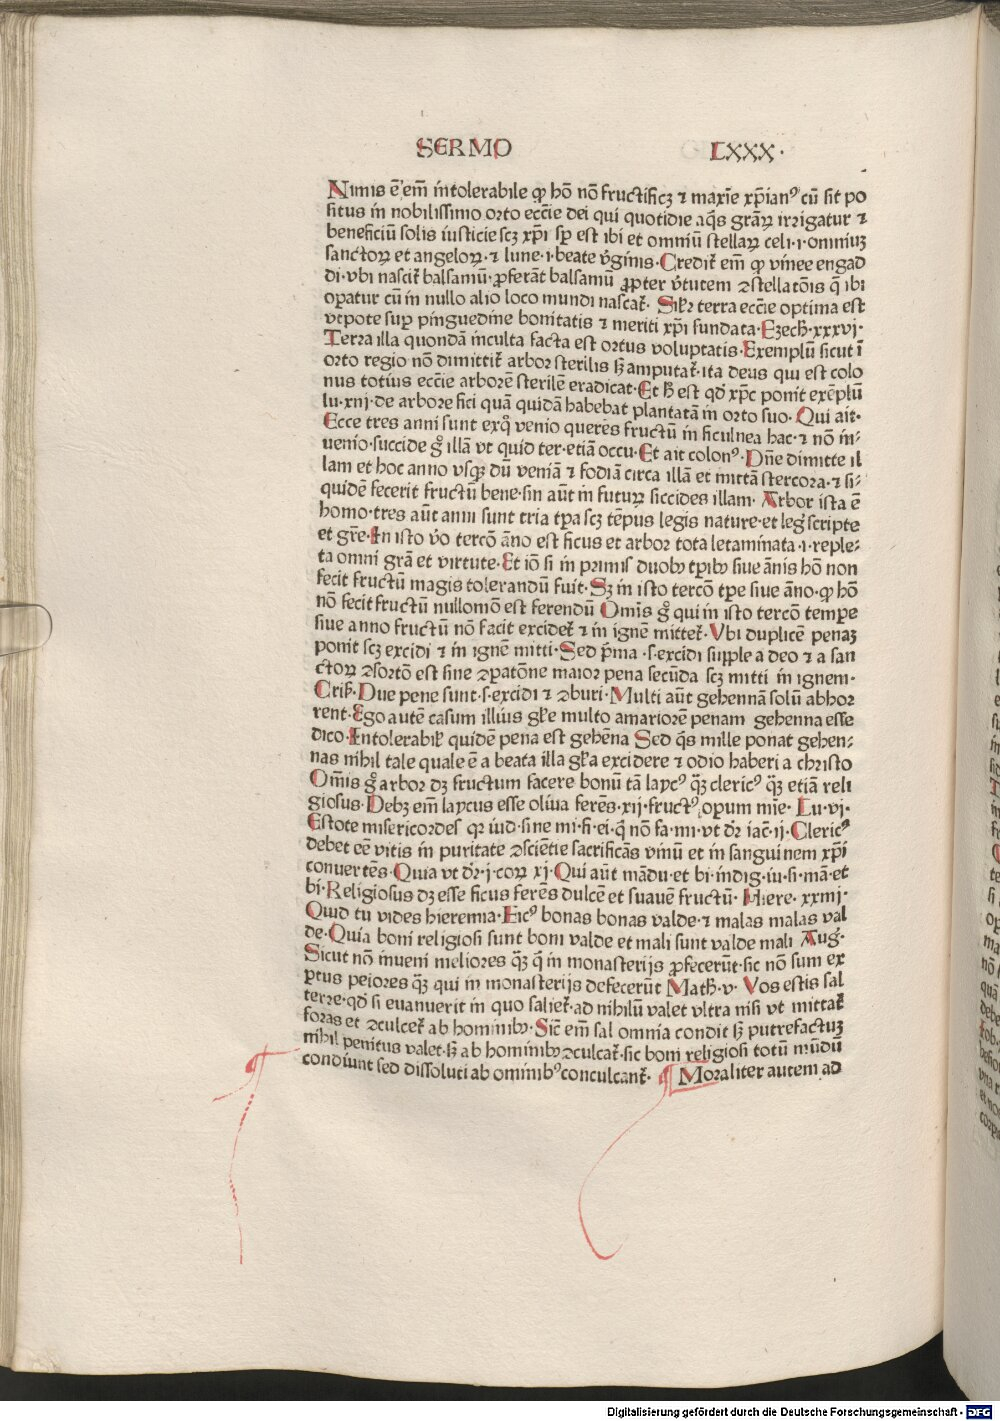 SERMO LXXX·
Nimis ē em̄ intolerabile ꝙ hō nō fructificꝫ ⁊ maxīe xp̄ianꝰ cū sit po
situs in nobilissimo orto ecc̄ie dei qui quotidie aq̄s grāꝝ irrigatur ⁊
beneficiū solis iusticie scꝫ xp̄i sp̄ est ibi et omniū stellaꝝ celi·i·omniuꝫ
sanctoꝝ et angeloꝝ·⁊ lune·i·beate v̄ginis·Credit̄ em̄ ꝙ vinee engad
di·vbi nascit̄ balsamū·ꝓferāt balsamū ꝓpter v̄tutem ꝯstellatōis q̄ ibi
oꝑatur cū in nullo alio loco mundi nascat̄· Silr̄ terra ecc̄ie optima est
vtpote suꝑ pinguedine bonitatis ⁊ meriti xp̄i fundata·Ezech̄·xxxvj·
Terra illa quondā inculta facta est ortus voluptatis·Exemplū sicut ī
orto regio nō dimittit̄ arbor sterilis sꝫ amputat̄·ita deus qui est colo
nus totius ecc̄ie arborē sterilē eradicat·Et h̄ est qd̄ xp̄c ponit exēplū
lu·xiij·de arbore fici quā quidā habebat plantatā in orto suo· Qui ait·
Ecce tres anni sunt exq̊ venio querēs fructū in ficulnea hac·⁊ nō in⸗
uenio·succide gͦ illā vt quid ter·etiā occu·Et ait colonꝰ·Dn̄e dimitte il
lam et hoc anno vsqꝫ dū veniā ⁊ fodiā circa illā et mittā stercora·⁊ si⸗
quidē fecerit fructū bene·sin aūt in futuꝝ siccides illam· Arbor ista ē
homo·tres aūt anni sunt tria tp̄a scꝫ tēpus legis nature·et leḡ scripte
et gr̄e·In isto v̄o tercō āno est ficus et arbor tota letaminata·i·reple⸗
ta omni grā et virtute·Et iō si in primis duobꝫ tp̄ibꝫ siue ānis hō non
fecit fructū magis tolerandū fuit·Sꝫ in isto tercō tp̄e siue āno·ꝙ hō
nō fecit fructū nullomō est ferendū Omīs gͦ qui in isto tercō tempe
siue anno fructū nō facit excidet̄ ⁊ in ignē mittet̄·Vbi duplicē penaꝫ
ponit scꝫ excidi ⁊ in ignē mitti·Sed p̄ma ·s·excidi supple a deo ⁊ a san
ctoꝝ ꝯsortō est sine ꝯꝑatōne maior pena secūda scꝫ mitti in ignem·
Cris̄·Due pene sunt·s·excidi ⁊ ꝯburi·Multi aūt gehennā solū abhor
rent·Ego autē casum illius gl̄ie multo amariorē penam gehenna esse
dico·Intolerabil̄ quidē pena est gehēna Sed q̄s mille ponat gehen⸗
nas nihil tale quale ē a beata illa gl̄ia excidere ⁊ odio haberi a christo
Omīs gͦ arbor dꝫ fructum facere bonū tā laycꝰ q̄ꝫ clericꝰ q̄ꝫ etiā reli
giosus·Debꝫ em̄ laycus esse oliua ferēs·xij·fructꝰ oꝑum mīe· Lu·vj·
Estote misericordes qr iud·sine mi·fi·ei·q̄ nō fa·mi·vt dr̄ iac̄·ij·Clericꝰ
debet eē vitis in puritate ꝯscientie sacrificās vinū et in sanguinem xp̄i
conuertēs·Quia vt dr̄·j·coꝝ xj·Qui aūt mādu·et bi·indig·iu·si·mā·et
bi·Religiosus dꝫ esse ficus ferēs dulcē et suauē fructū· Hiere·xxiiij·
Quid tu vides hieremia·Ficꝰ bonas bonas valde·⁊ malas malas val
de·Quia boni religiosi sunt boni valde et mali sunt valde mali Auḡ·
Sicut nō inueni meliores q̄ꝫ q̄ in monasterijs ꝓfecerūt·sic nō sum ex
ꝑtus peiores q̄ꝫ qui in monasterijs defecerūt Math̄·v· Vos estis sal
terre·qd̄ si euanuerit in quo saliet̄·ad nihilū valet vltra nisi vt mittat̄
foras et ꝯculcet̄ ab hominibꝫ·Sic̄ em̄ sal omnia condit sꝫ putrefactuꝫ
nihil penitus valet·sꝫ ab hominibꝫ ꝯculcat̄·sic boni religiosi totū mūdū
condiunt sed dissoluti ab ominibꝰ conculcant̄· ¶ Moraliter autem ad
Digitalisierung gefördert durch die Deutsche Forschungsgemeinschaft - DFG